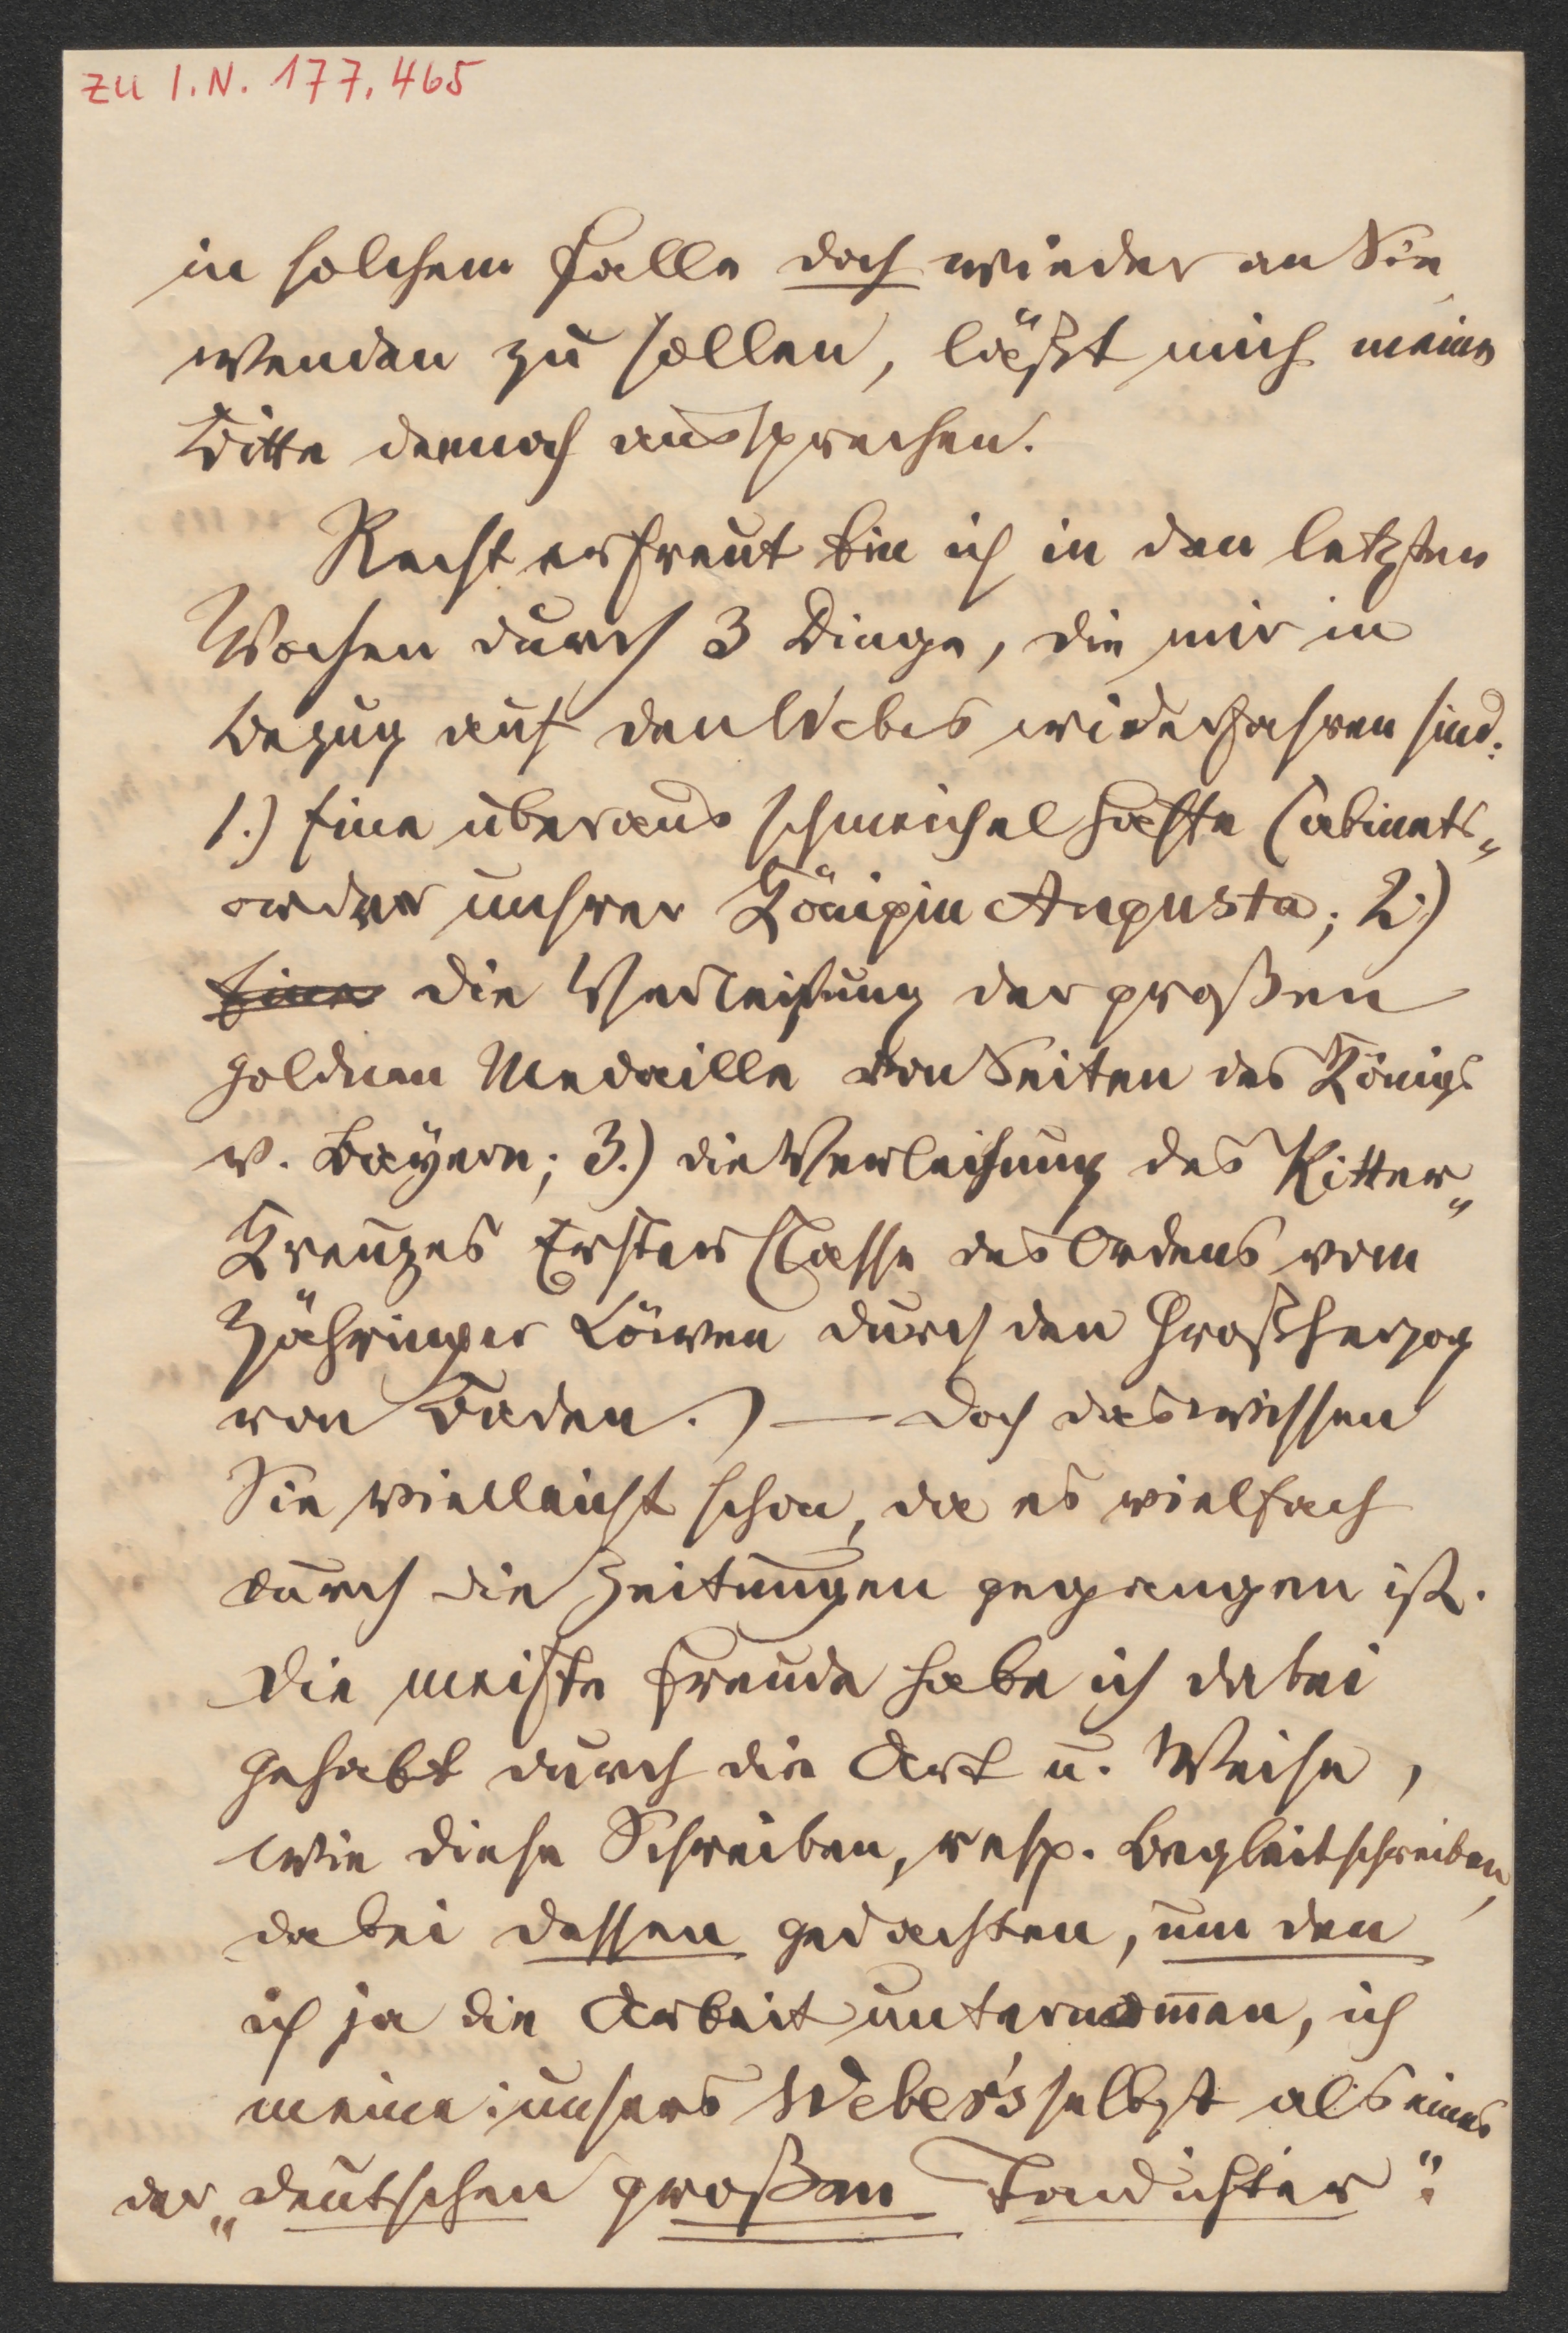 zu I.N. 177.465
in solchem Falle doch wieder an Sie
wenden zu sollen, läßt mich meine
Bitte dennoch aussprechen.
Recht erfreut bin ich in den letzten
Wochen durch 3 Dinge, die mir in
Bezug auf den Weber widerfahren sind:
1.) Eine überaus schmeichelhafte Cabinets„
order unsrer Königin Augusta; 2.)
Eine die Verleihung der großen
goldnen Medaille von Seiten des Königs
v. Bayern; 3.) die Verleihung des Ritter„
Kreuzes Erster Classe des Ordens vom
Zähringer Löwen durch den Großherzog
von Baden.) — Doch das wissen
Sie vielleicht schon, da es vielfach
durch die Zeitungen gegangen ist.
Die meiste Freude habe ich dabei
gehabt durch die Art u. Weise,
wie diese Schreiben, resp. Begleitschreiben,
dabei dessen gedachten, um den
ich ja die Arbeit unternom̄en, ich
meine: unsers Weber's selbst als eines
der „deutschen großen Tondichter“.